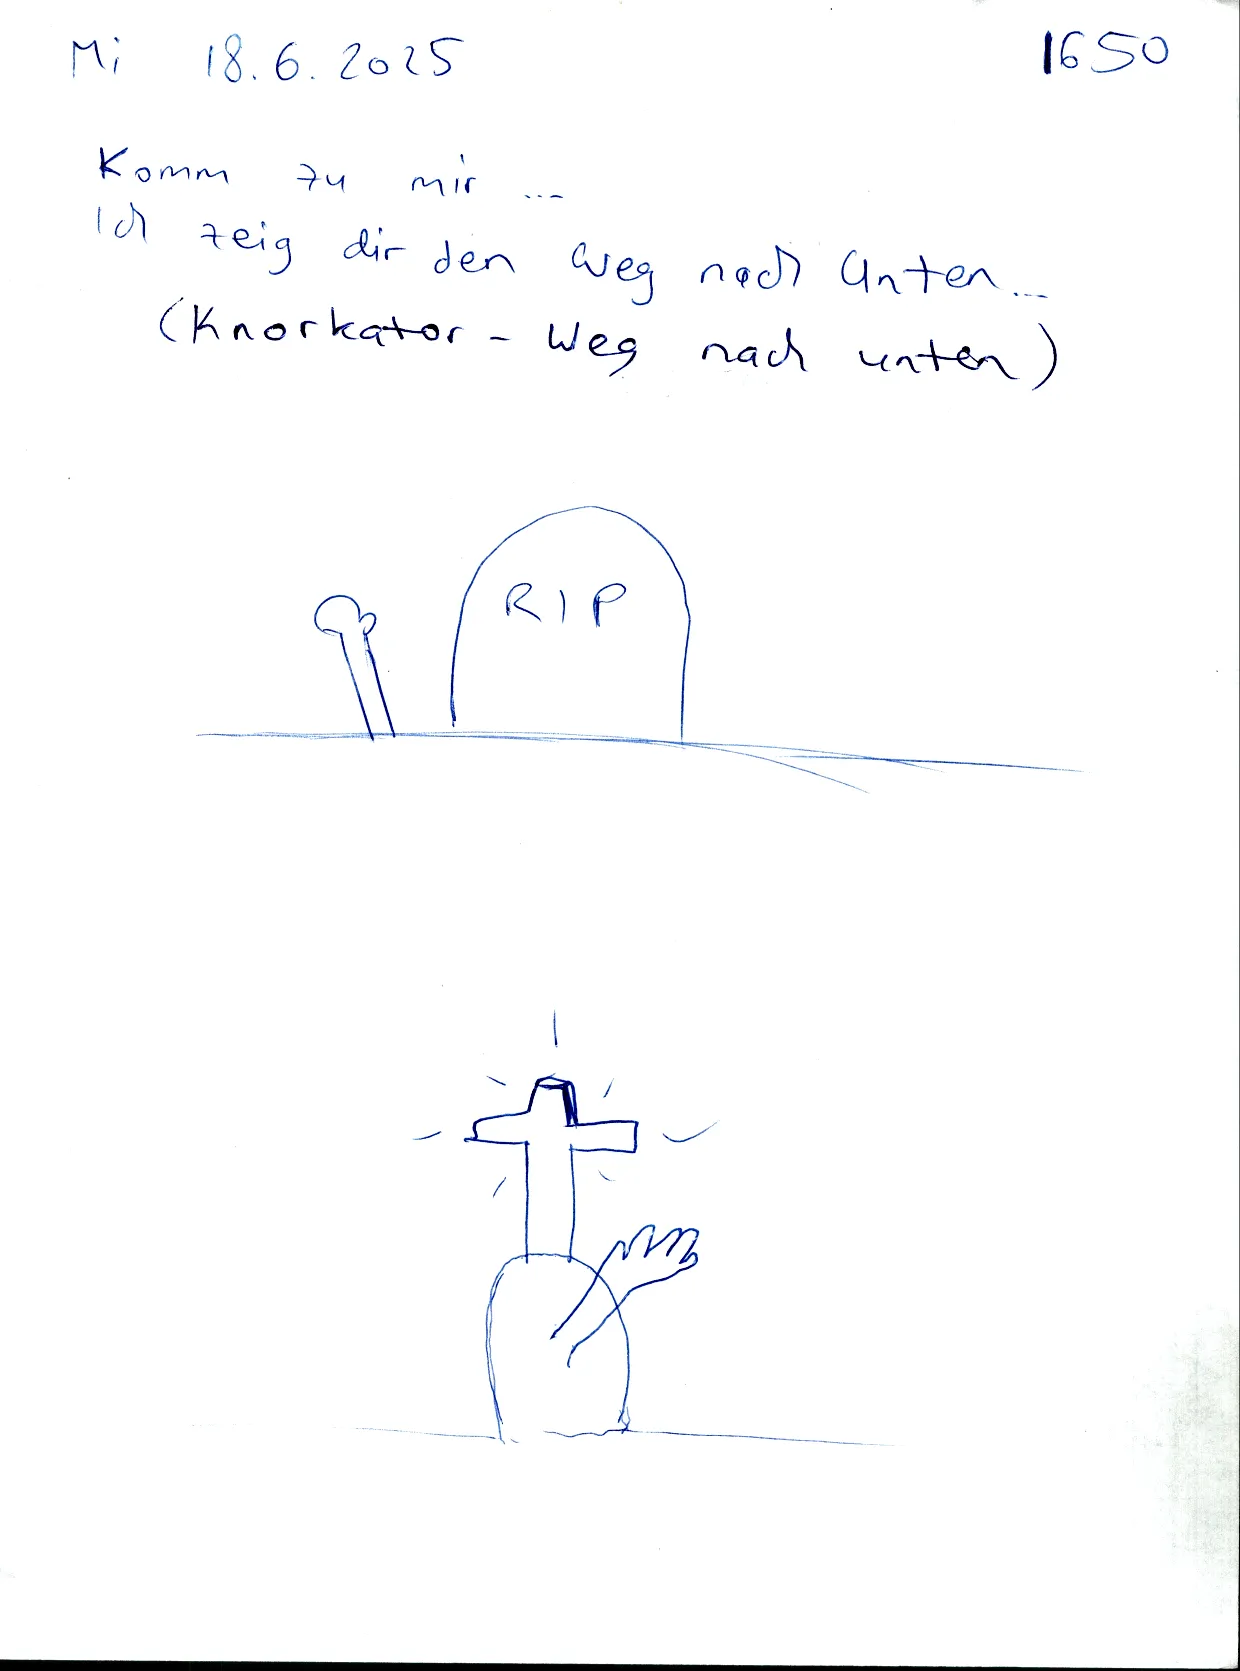 Mi 18.6.2025 1650
Komm zu mir ...
Ich zeig dir den Weg nach Unten...
(Knorkator - Weg nach unten)
RIP